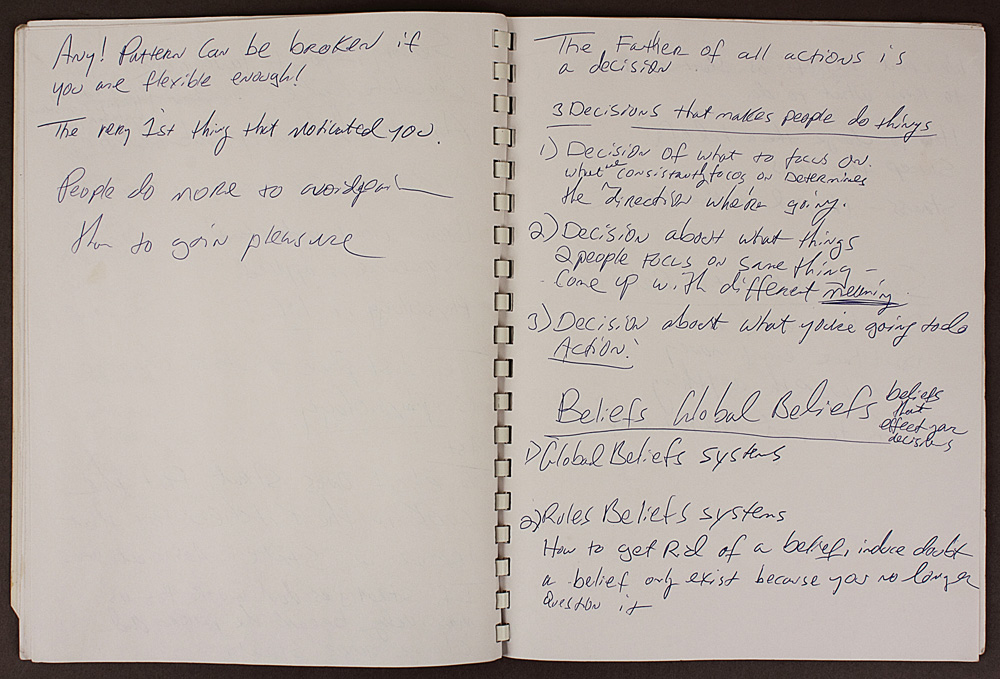 Any! Pattern Can be broken if
you are flexible enough!
The very 1st thing that motivated you.
People do more to avoid pain
than to gain pleasure
The Father of all actions is
a decision
3 Decisions that makes people do things
1) Decision of what to focus on.
what we consistantly focos on Determines
the Direction where going.
2) Decision about what things
2 people focus on same thing –
come up with different meaning.
3) Decision about what you're going to do
Action!
Beliefs Global Beliefs beliefs
that
effect your
decisions
1) Global Beliefs systems
2) Rules Beliefs systems
How to get Rid of a belief, induce doubt
a belief only exist because you no longer
question it